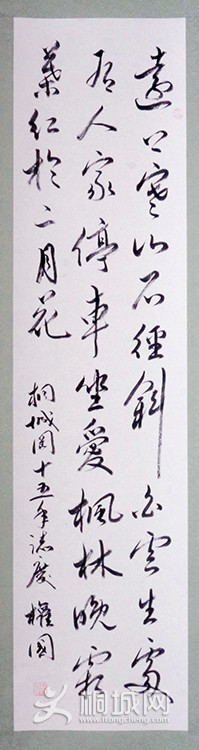 遠上寒山石徑斜白雲生處
有人家停車坐愛楓林晚霜
葉紅於二月花
桐城网十五年誌慶
桐城网